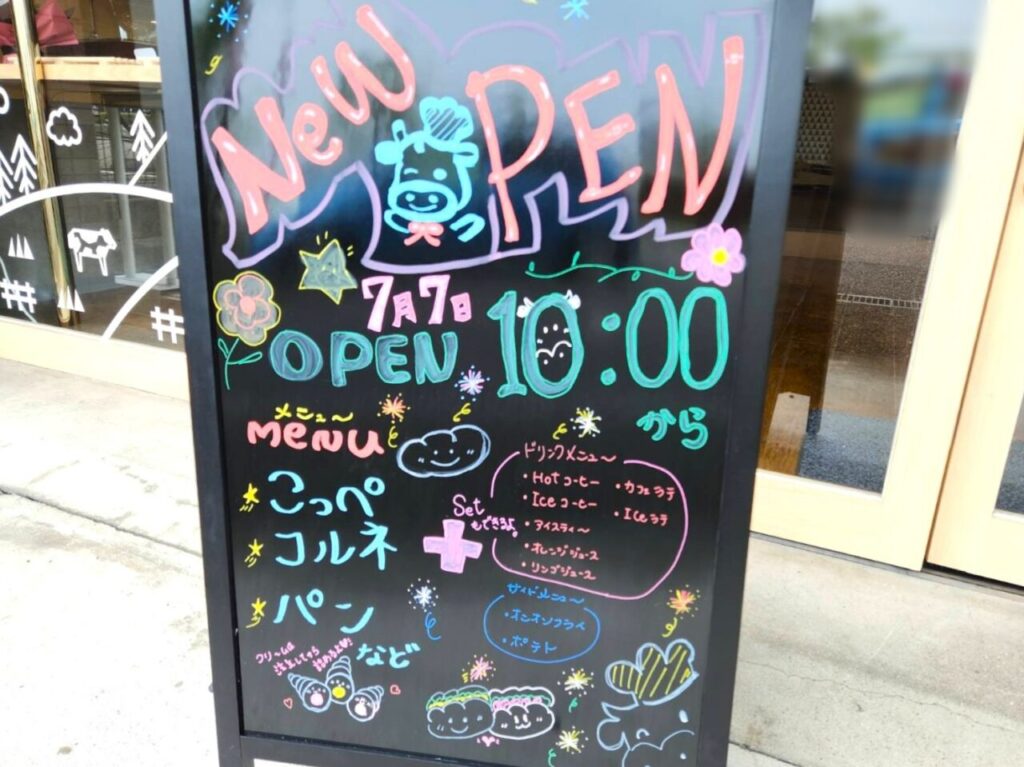 New OPEN
7月7日
OPEN 10:00
から
メニュー
MENU
こっぺ
コルネ
パン
など
Set
もできるよ。
ドリンクメニュー
・Hot コーヒー
・Ice コーヒー
・アイスティー
・オレンジジュース
・リンゴジュース
・カフェラテ
・Iceラテ
サイドメニュー
・オニオンフライ
・ポテト
クリームは
注文してから
詰めるよ